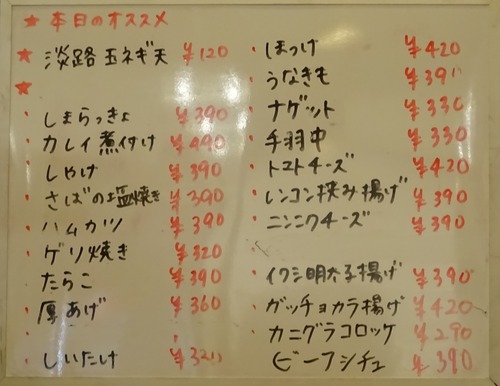 ★ 本日のオススメ
★ 淡路玉ネギ天 ¥120
★
・しまらっきょ ¥390
・カレイ煮付け ¥490
・しゃけ ¥390
・さばの塩焼き ¥390
・ハムカツ ¥390
・ゲソ焼き ¥320
・たらこ ¥390
・厚あげ ¥360
・しいたけ ¥320
・ほっけ ¥420
・うなきも ¥390
・ナゲット ¥330
・手羽中 ¥330
・トマトチーズ ¥420
・レンコン挟み揚げ ¥390
・ニンニクチーズ ¥390
・イワシ明太子揚げ ¥390
・ガッチョカラ揚げ ¥420
・カニグラコロッケ ¥290
・ビーフシチュ ¥390